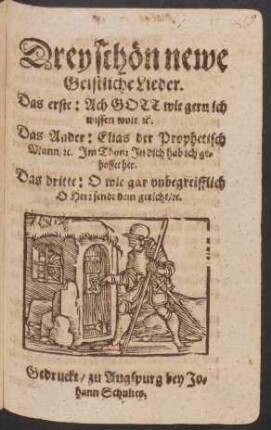 Drey schön newe
Geistliche Lieder.
Das erste: Ach GOTT wie gern ich
wissen wolt ꝛc.
Das Ander: Elias der Prophetisch
Mann/ꝛc. Im Thon: In dich hab ich ge-
hoffet her.
Das dritte: O wie gar vnbegreifflich
O Herr sendt dein gericht/ꝛc.
Gedruckt/ zu Augspurg bey Jo-
hann Schultes.